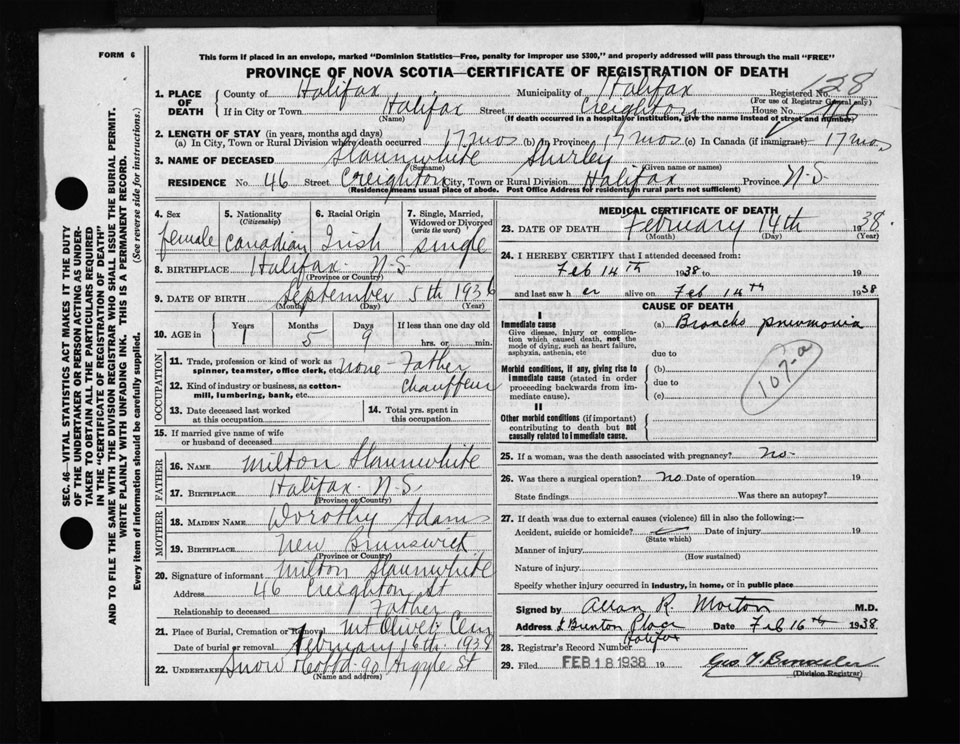 FORM 6
This form if placed in an envelope, marked "Dominion Statistics—Free, penalty for improper use $300," and properly addressed will pass through the mail "FREE"
PROVINCE OF NOVA SCOTIA—CERTIFICATE OF REGISTRATION OF DEATH
SEC. 46—VITAL STATISTICS ACT MAKES IT THE DUTY
OF THE UNDERTAKER OR PERSON ACTING AS UNDER-
TAKER TO OBTAIN ALL THE PARTICULARS REQUIRED
IN THE "CERTIFICATE OF REGISTRATION OF DEATH"
AND TO FILE THE SAME WITH THE DIVISION REGISTRAR WHO SHALL ISSUE THE BURIAL PERMIT.
WRITE PLAINLY WITH UNFADING INK. THIS IS A PERMANENT RECORD.
Every item of information should be carefully supplied. (See reverse side for instructions.)
1. PLACE OF DEATH County of Halifax Municipality of Halifax Registered No. 128
(For use of Registrar General only)
If in City or Town Halifax Street Creighton House No. 46
(Name) (If death occurred in a hospital or institution, give the name instead of street and number)
2. LENGTH OF STAY (in years, months and days)
(a) In City, Town or Rural Division where death occurred 17 mos (b) in Province 17 mos (c) In Canada (if immigrant) 17 mos
3. NAME OF DECEASED Slaunwhite Shirley
(Surname) (Given name or names)
RESIDENCE No. 46 Street Creighton City, Town or Rural Division Halifax Province N-S
(Residence means usual place of abode. Post Office Address for residents in rural parts not sufficient)
4. Sex 5. Nationality (Citizenship) 6. Racial Origin 7. Single, Married, Widowed or Divorced (write the word)
female Canadian Irish single
8. BIRTHPLACE Halifax N-S
(Province or Country)
9. DATE OF BIRTH September 5th 1936
(Month) (Day) (Year)
10. AGE in Years Months Days If less than one day old
1 5 9 hrs. or min.
OCCUPATION
11. Trade, profession or kind of work as spinner, teamster, office clerk, etc. none - Father
12. Kind of industry or business, as cotton-mill, lumbering, bank, etc. chauffeur
13. Date deceased last worked at this occupation 14. Total yrs. spent in this occupation
15. If married give name of wife or husband of deceased
FATHER
16. NAME Milton Slaunwhite
17. BIRTHPLACE Halifax N-S
(Province or Country)
MOTHER
18. MAIDEN NAME Dorothy Adams
19. BIRTHPLACE New Brunswick
(Province or Country)
20. Signature of informant Milton Slaunwhite
Address 46 Creighton St
Relationship to deceased Father
21. Place of Burial, Cremation or Removal Mt Olivet Cem
Date of burial or removal February 16th 1938
22. UNDERTAKER Snow & Co Ltd 90 Argyle St
(Name and address)
MEDICAL CERTIFICATE OF DEATH
23. DATE OF DEATH February 14th 1938
(Month) (Day) (Year)
24. I HEREBY CERTIFY that I attended deceased from:
Feb 14th 1938 to 19
and last saw h er alive on Feb 14th 1938
CAUSE OF DEATH
I
Immediate cause (a) Broncho pneumonia
Give disease, injury or complication which caused death, not the mode of dying, such as heart failure, asphyxia, asthenia, etc
due to
Morbid conditions, if any, giving rise to immediate cause (stated in order proceeding backwards from immediate cause). (b)
due to
(c)
107-a
II
Other morbid conditions (if important) contributing to death but not causally related to immediate cause.
25. If a woman, was the death associated with pregnancy? no-
26. Was there a surgical operation? No Date of operation 19
State findings Was there an autopsy?
27. If death was due to external causes (violence) fill in also the following:—
Accident, suicide or homicide? Date of injury 19
(State which)
Manner of injury
(How sustained)
Nature of injury
Specify whether injury occurred in industry, in home, or in public place
Signed by Allan R. Morton M.D.
Address Brunton Place Halifax Date Feb 16th 1938
28. Registrar's Record Number
29. Filed FEB 18 1938 Geo. F.
(Division Registrar)